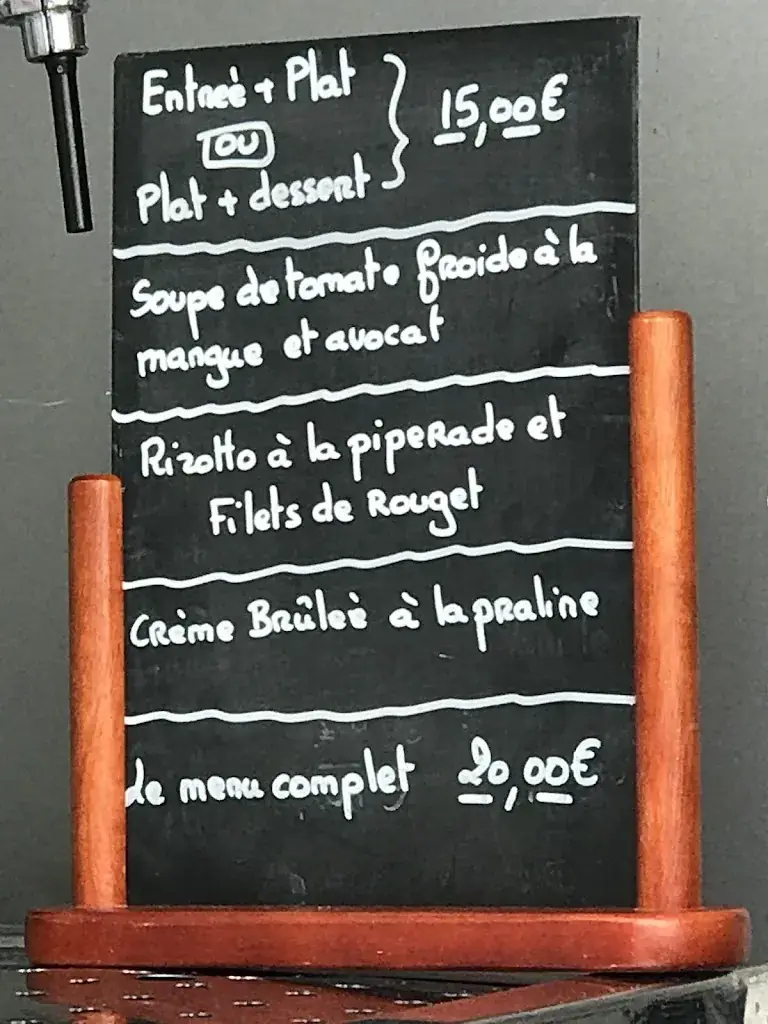 Entrée + Plat
OU
Plat + dessert
15,00€
Soupe de tomate froide à la
mangue et avocat
Rizotto à la piperade et
Filets de Rouget
Crème Brûleè à la praline
Le menu complet 20,00€